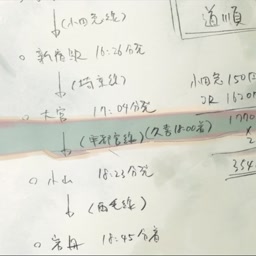 道順
↓(小田急線)
○ 新宿駅 16:26分発
↓(埼京線)
○ 大宮 17:09分発
↓(宇都宮線)(久喜18:00着)
○ 小山 18:23分発
↓(両毛線)
○ 岩舟 18:45分着
小田急 150円
JR 1620円
1770
× 2
354